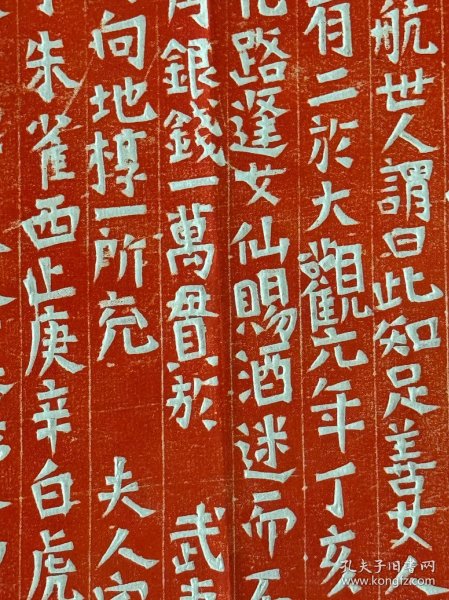 航世人謂曰此知足善女人
有二於大觀元年丁亥
化路逢女仙賜酒迷而不
銀錢一萬貫於　武
向地椁一所充　夫人
朱雀西止庚辛白虎
孔夫子旧书网
kongfz.com